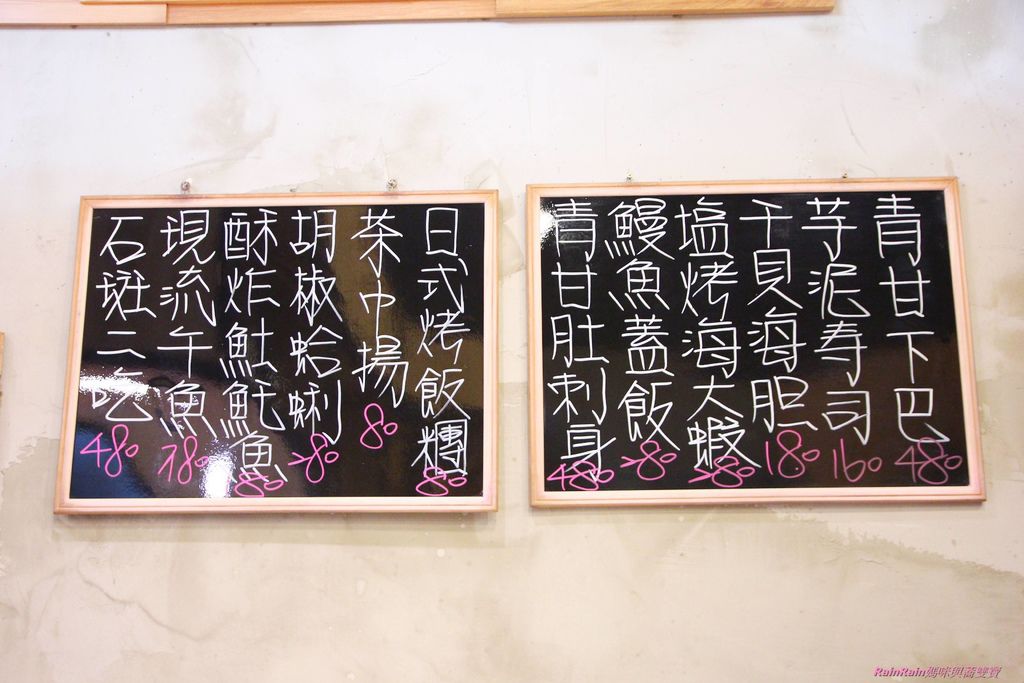 日式烤飯糰
80
茶巾揚
80
胡椒蛤蜊
280
酥炸魟魠魚
80
現流午魚
180
石斑二吃
480
青甘下巴
480
芋泥寿司
160
干貝海胆
180
塩烤海大蝦
280
鰻魚蓋飯
280
青甘肚刺身
480
RainRain媽咪與蕎雙寶